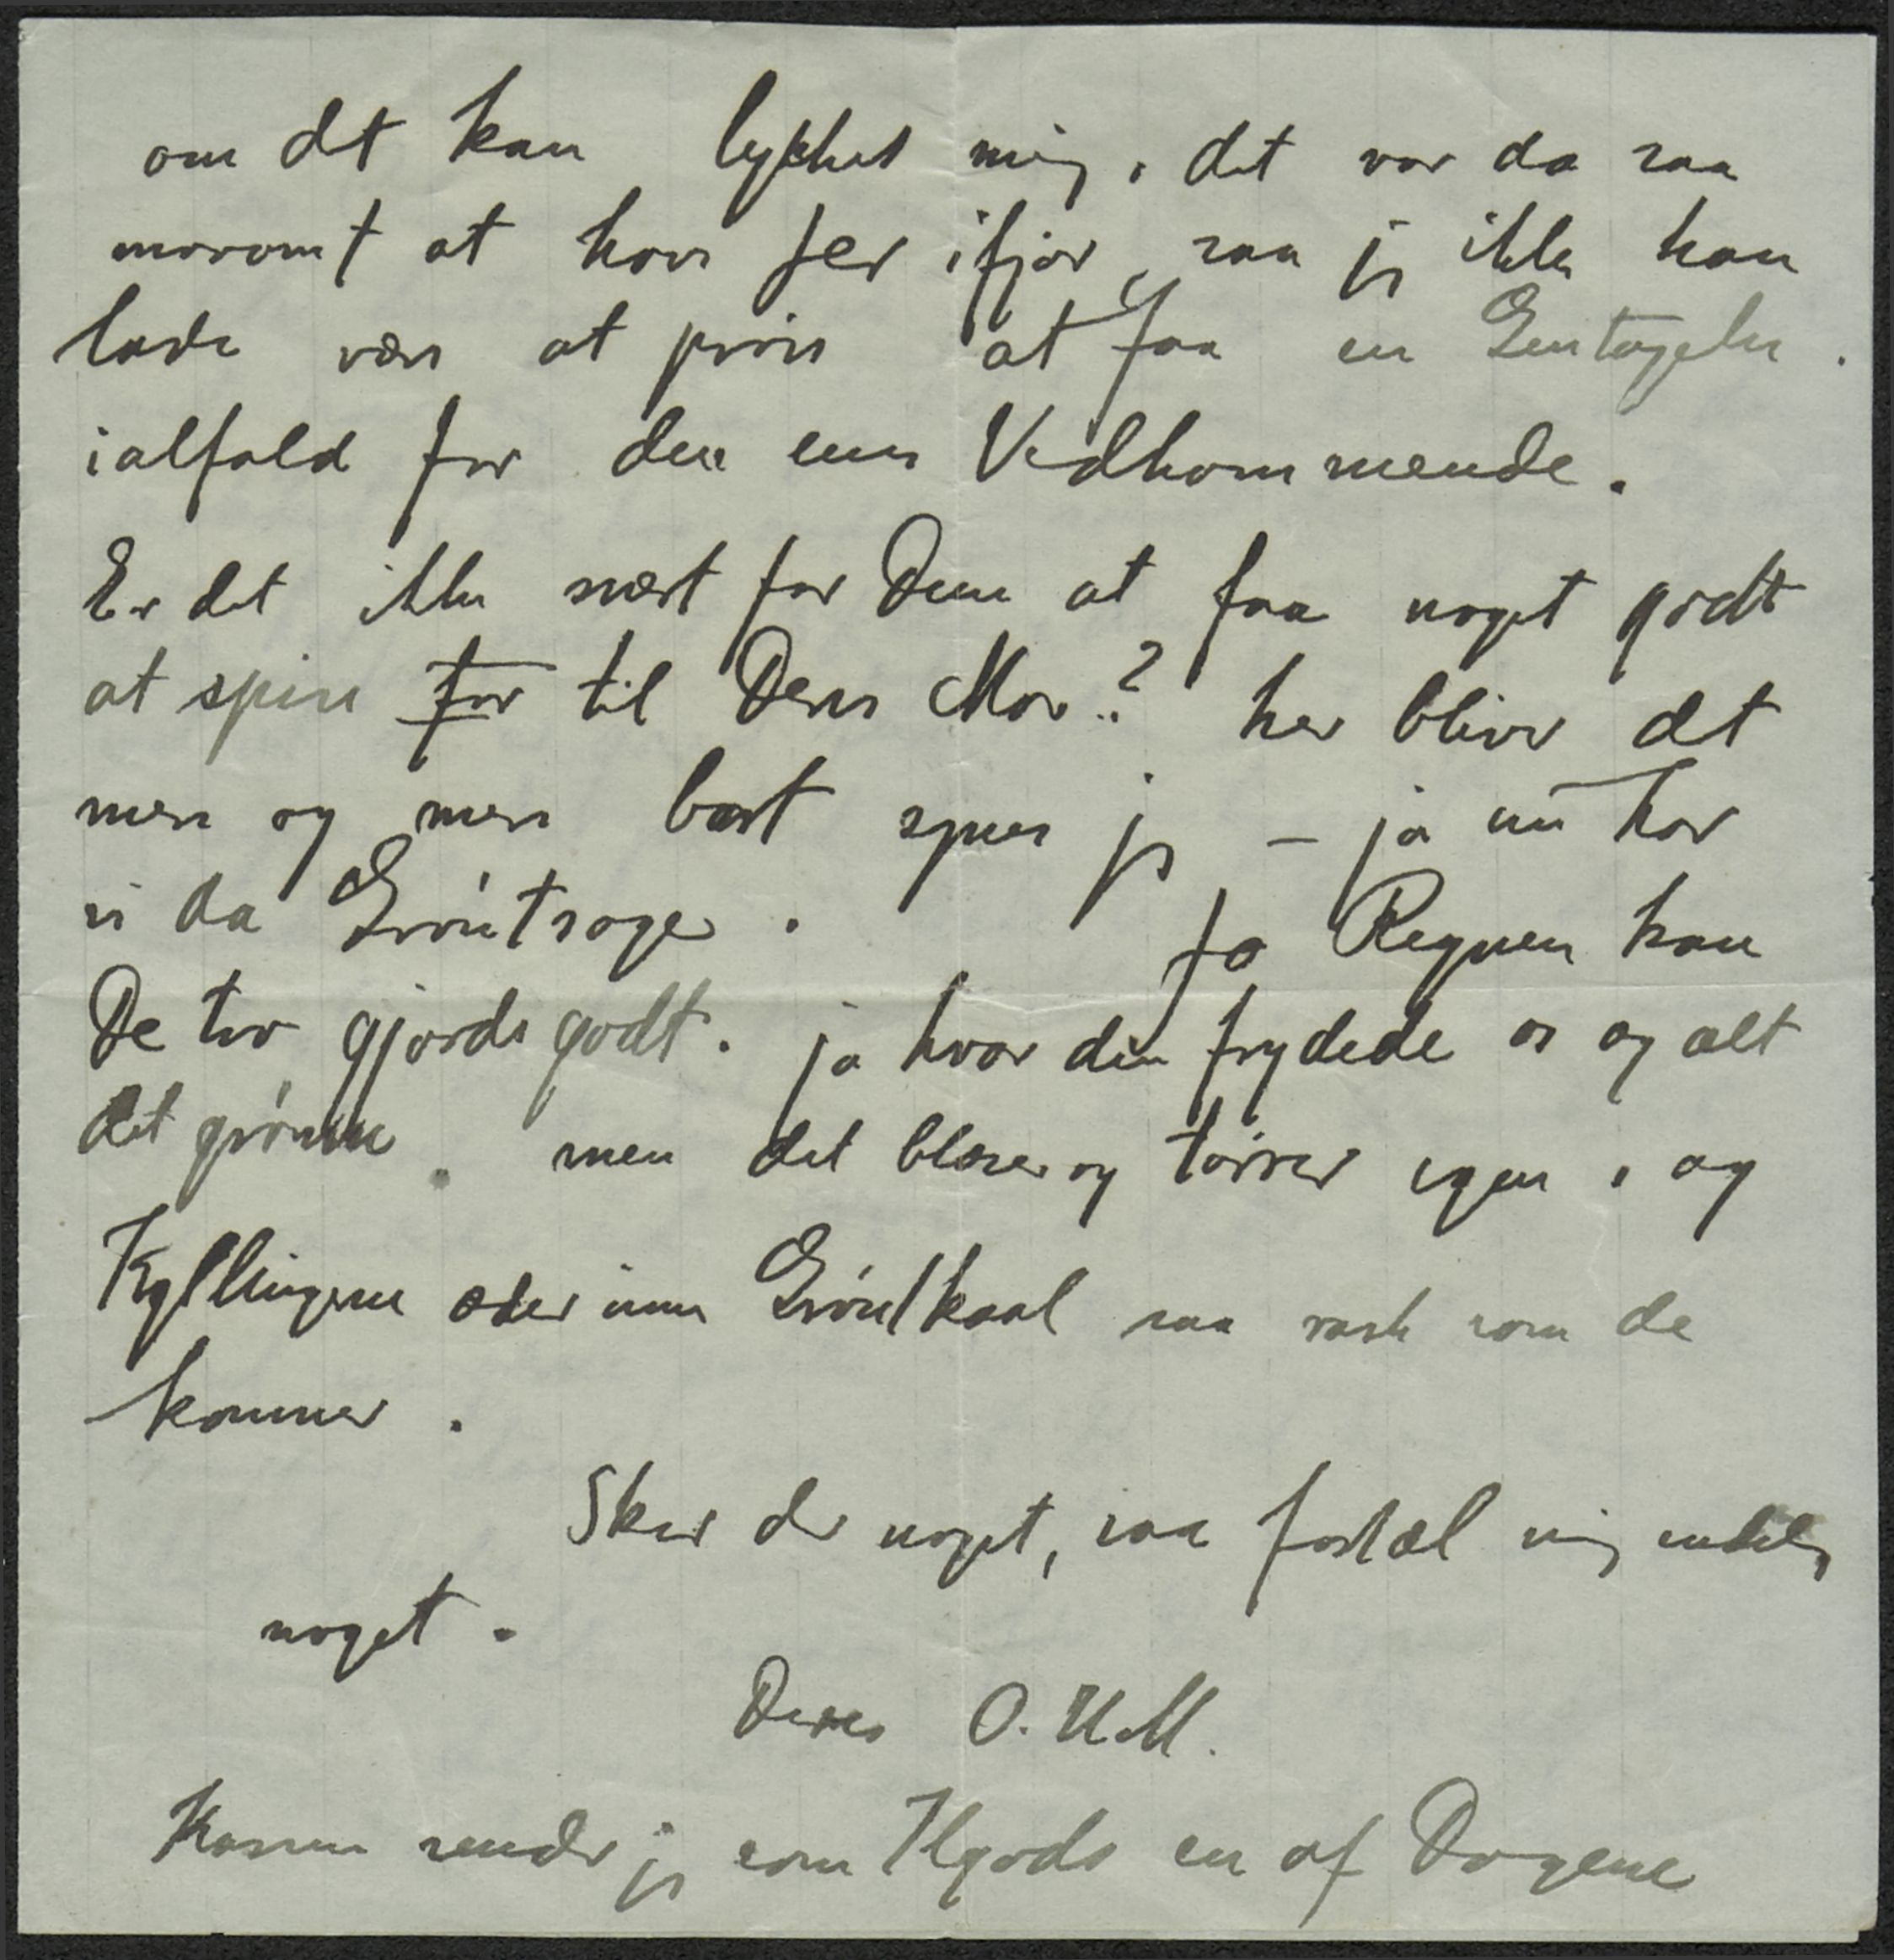 om dt kan lykkes mig, det var da saa
moromt at have Jer ifjor, saa jg ikke kan
lade være at prøve at faa en Gentagelse.
ialfald for den enes Vedkommende.
Er det ikke svært for Dem at faa noget godt
at spise for til Deres Mor? her bliver dt
mere og mere bart synes jg – ja nu har
vi da Gröntsager. Ja Regnen kan
De tro gjorde godt. ja hvor den frydede os og alt
det grönne. men det blæser og törrer igen, og
Kyllingerne æder min Grönkaal saa rask som de
kommer.
Sker der noget, saa fortæl mig endelig
noget.
Deres O. K M.
Kassen sender jg som Ilgods en af Dagene